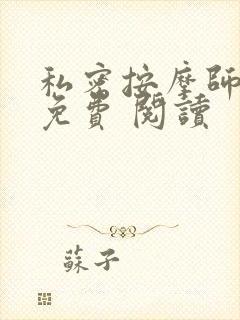 私密按摩師
免費 閱讀
蘇子